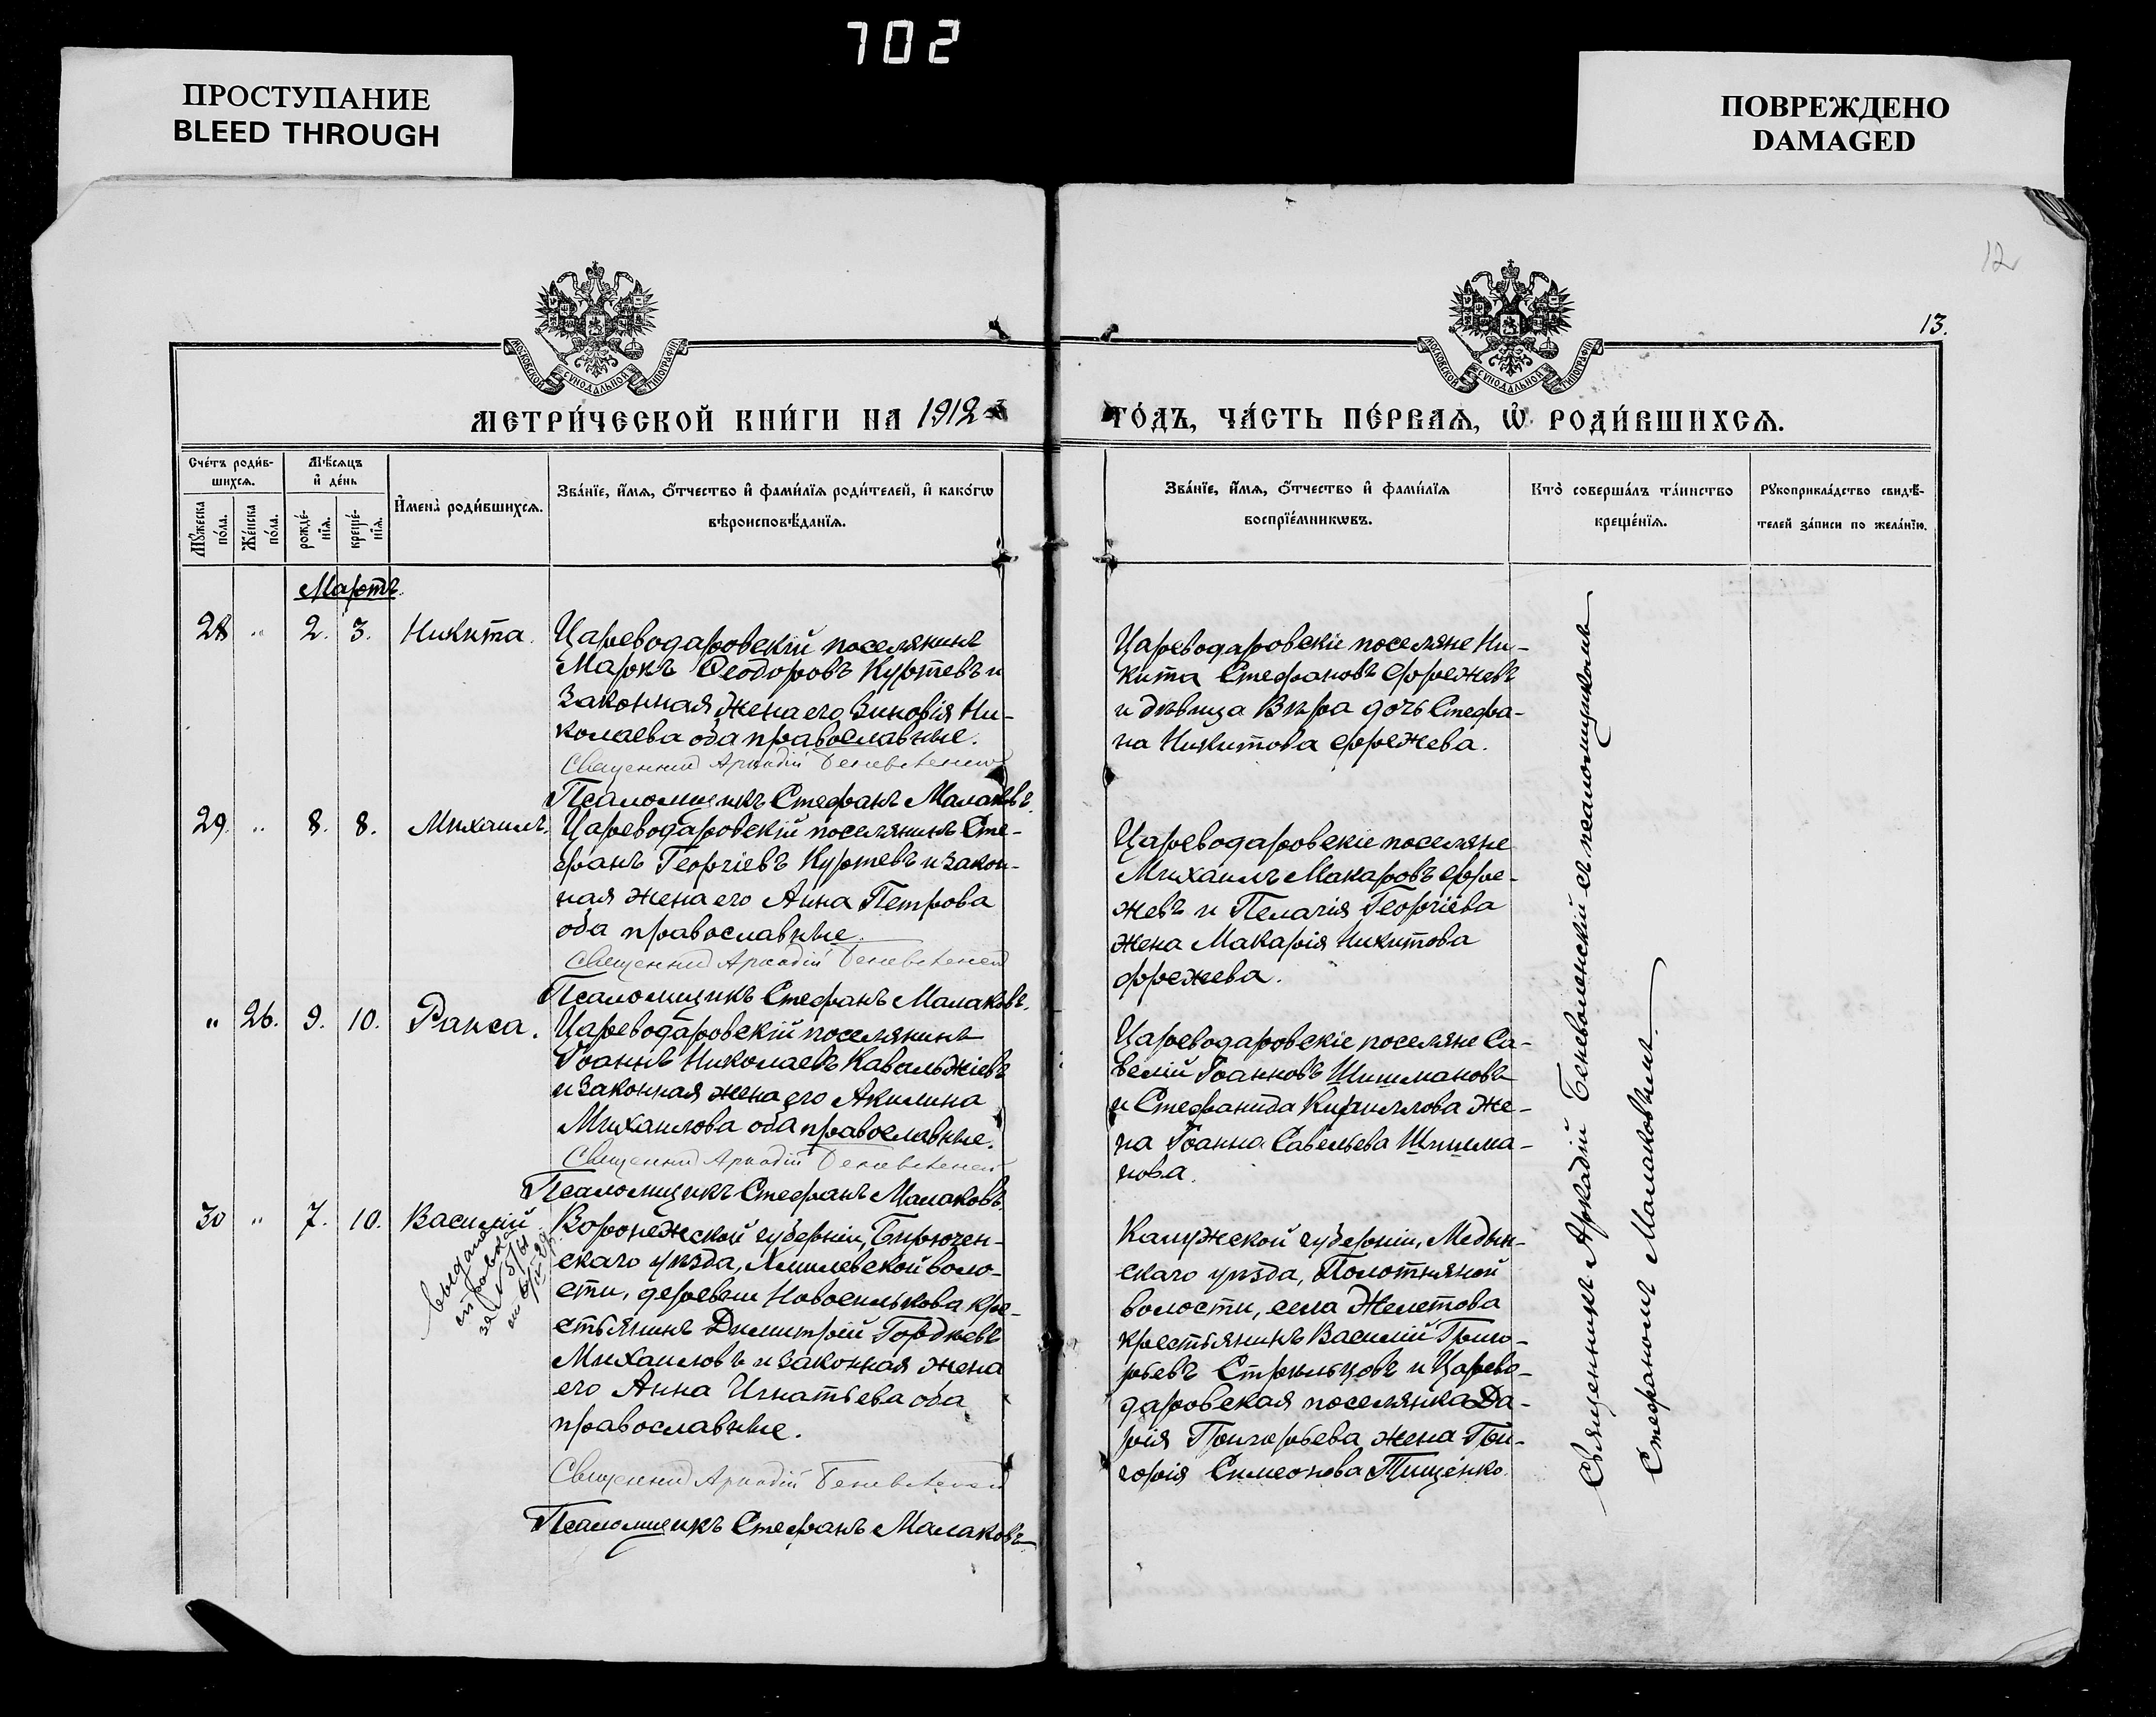 702
ПРОСТУПАНИЕ
BLEED THROUGH
ПОВРЕЖДЕНО
DAMAGED
12
13.
МОСКОВСКОЙ СУНОДАЛЬНОЙ ТИПОГРАФІИ
МОСКОВСКОЙ СУНОДАЛЬНОЙ ТИПОГРАФІИ
МЕТРИ́ЧЕСКОЙ КНИ́ГИ НА 1912
ГО́ДЪ, ЧА́СТЬ ПЕ́РВАѦ, Ѡ҆ РОДИ́ВШИХСѦ.
Сче́тъ роди́в-
шихсѧ.
Мѣ́сѧцъ
и҆ де́нь
Мꙋ́жеска по́ла.
Же́нска по́ла.
рожде́-
нїѧ.
креще́-
нїѧ.
И҆мена̀ роди́вшихсѧ.
Зва́нїе, и҆́мѧ, ѻ҆́тчество и҆ фами́лїѧ роди́телей, и҆ како́гѡ
вѣроисповѣ́данїѧ.
Зва́нїе, и҆́мѧ, ѻ҆́тчество и҆ фами́лїѧ
воспрїе́мникѡвъ.
Кто̀ соверша́лъ та́инство
креще́нїѧ.
Рꙋкоприкла́дство свидѣ́-
телей за́писи по жела́нїю.
Мартъ.
28 " 2. 3. Никита.
Цареводаровскій поселянинъ
Маркъ Ѳеодоровъ Куртевъ и
законная жена его Зиновія Ни-
колаева оба православные.
Священникъ Аркадій Беневоленскій
Псаломщикъ Стефанъ Малаковъ.
Цареводаровскіе поселяне Ни-
кита Стефановъ Фрежевъ
и дѣвица Вѣра дочь Стефа-
на Никитова Фрежева.
29. " 8. 8. Михаилъ.
Цареводаровскій поселянинъ Сте-
фанъ Георгіевъ Куртевъ и закон-
ная жена его Анна Петрова
оба православные.
Священникъ Аркадій Беневоленскій
Псаломщикъ Стефанъ Малаковъ.
Цареводаровскіе поселяне
Михаилъ Макаровъ Фре-
жевъ и Пелагія Георгіева
жена Макарія Никитова
Фрежева.
" 26. 9. 10. Раиса.
Цареводаровскій поселянинъ
Іоаннъ Николаевъ Кавальжіевъ
и законная жена его Акилина
Михаилова оба православные.
Священникъ Аркадій Беневоленскій
Псаломщикъ Стефанъ Малаковъ.
Цареводаровскіе поселяне Са-
велій Іоанновъ Шишмановъ
и Стефанида Кириллова же-
на Іоанна Савельева Шишма-
нова.
30 " 7. 10. Василій.
выдана
справка
за №
Воронежской губерніи, Бирючен-
скаго уѣзда, Хмилевской воло-
сти, деревни Новосильнова кре-
стьянинъ Димитрій Гордѣевъ
Михаиловъ и законная жена
его Анна Игнатьева оба
православные.
Священникъ Аркадій Беневоленскій
Псаломщикъ Стефанъ Малаковъ
Калужской губерніи, Медын-
скаго уѣзда, Полотняной
волости, села Желетова
крестьянинъ Василій Григо-
рьевъ Стрѣльцовъ и Царево-
даровская поселянка Да-
рія Григорьева жена Гри-
горія Симеонова Тищенко.
Священникъ Аркадій Беневоленскій съ псаломщикомъ
Стефаномъ Малаковымъ.